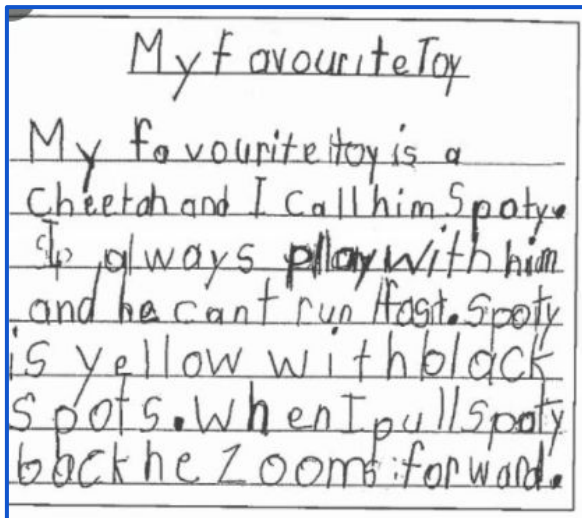 My favourite Toy
My favourite toy is a
Cheetah and I Call him Spoty.
I always play with him
and he cant run fast. Spoty
is yellow with black
spots. When I pull Spoty
back he Zooms forward.